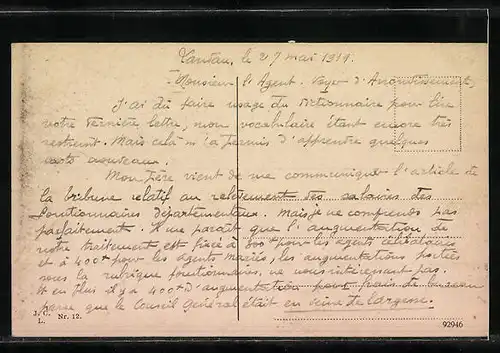 Landau, le 27 mai 1919.
Monsieur l'Agent-Voyer d'Arrondissement,
J'ai dû faire usage du dictionnaire pour lire
votre dernière lettre, mon vocabulaire étant encore très
restreint. Mais cela m'a permis d'apprendre quelques
mots nouveaux.
Mon Père vient de me communiquer l'article de
la tribune relatif au relèvement des salaires des
fonctionnaires Départementaux. Mais je ne comprends pas
parfaitement. Il me paraît que l'augmentation de
notre traitement est fixée à 500 pour les agents célibataires
et à 400 pour les agents mariés, les augmentations portées
sous la rubrique fonctionnaires ne nous intéressant pas.
Et en plus il y a 400 d'augmentation pour frais de bureau
parce que le Conseil Général était en veine de largesse.
J. C.
L.
Nr. 12.
92946